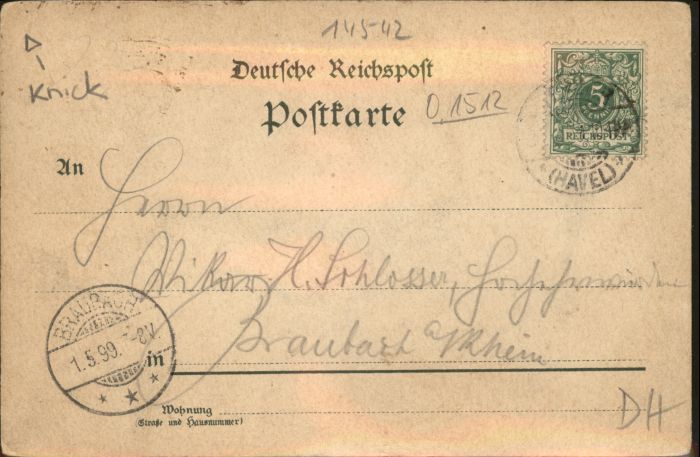 145-42
Knick
Deutsche Reichspost
Postkarte
0.1512
5
REICHSPOST
(HAVEL)
An
Herrn
Vikar H. Schlosser, Hochehrwürden
Braubach a/Rhein
BRAUBACH
1.5.99. 7-8V.
in
Wohnung
(Straße und Hausnummer)
DH